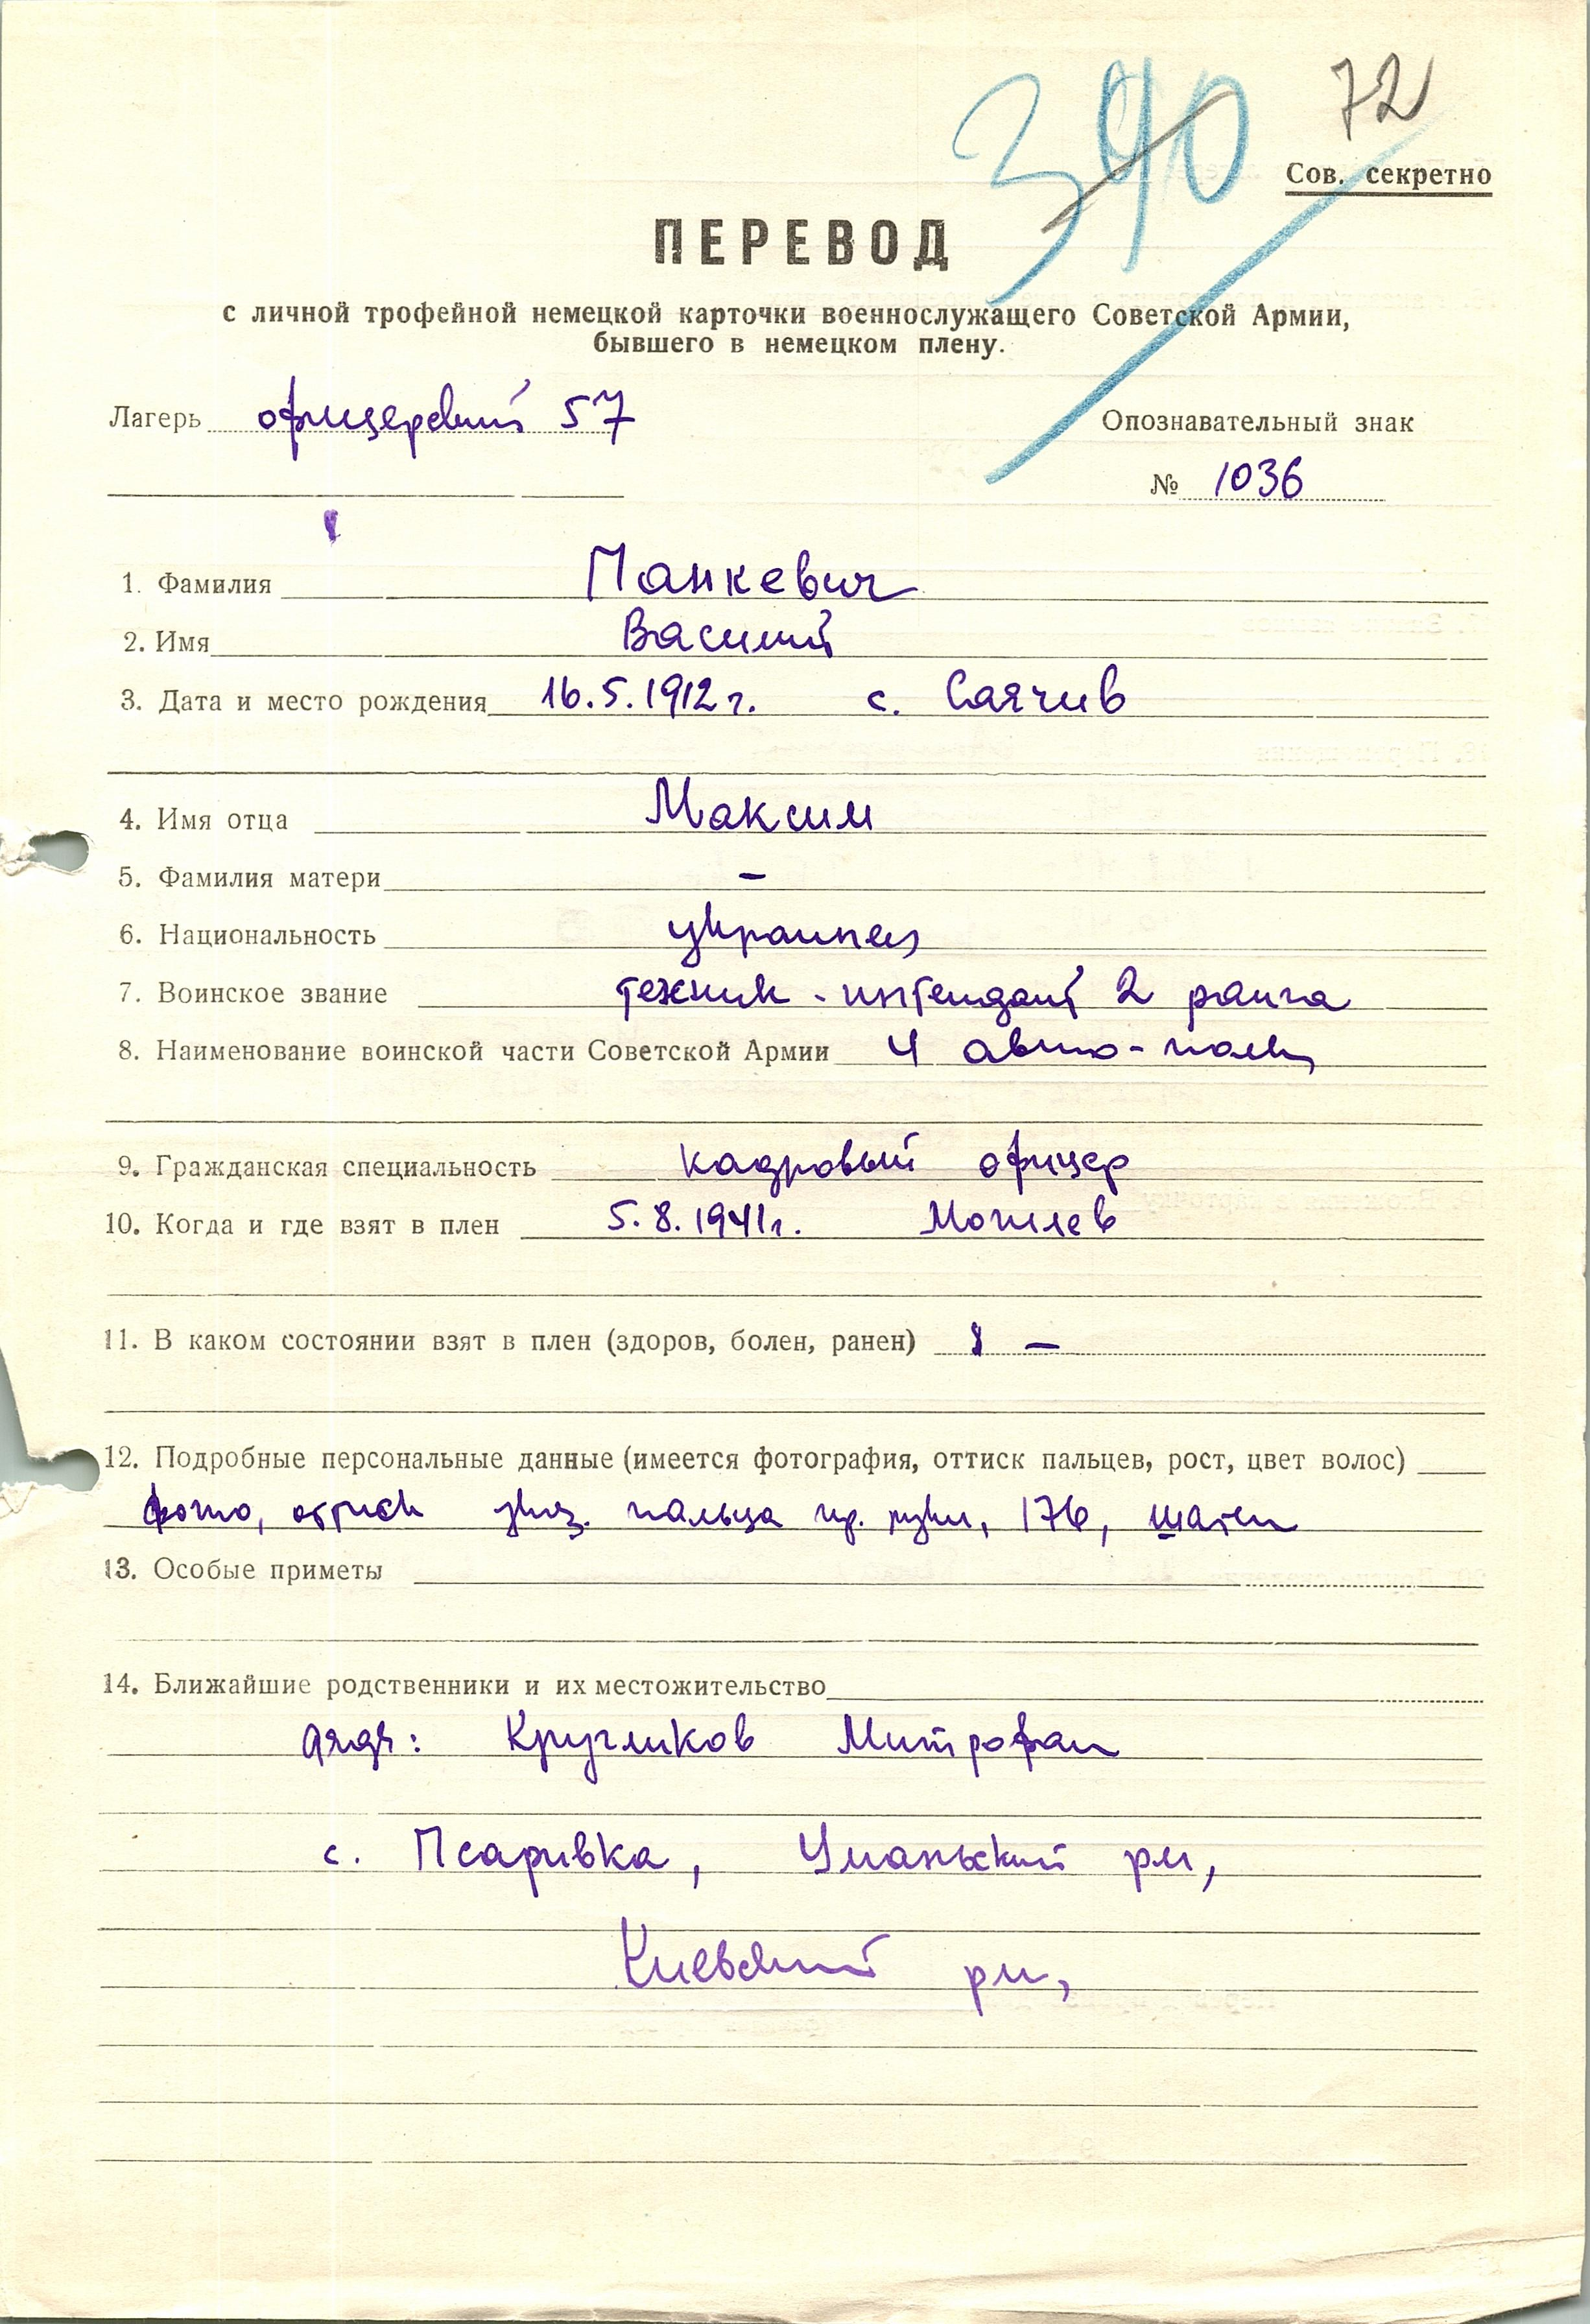 390 72
Сов. секретно
ПЕРЕВОД
с личной трофейной немецкой карточки военнослужащего Советской Армии,
бывшего в немецком плену.
Лагерь офицерский 57
Опознавательный знак
№ 1036
1. Фамилия Панкевич
2. Имя Василий
3. Дата и место рождения 16.5.1912 г. с. Саячив
4. Имя отца Максим
5. Фамилия матери –
6. Национальность украинец
7. Воинское звание техник-интендант 2 ранга
8. Наименование воинской части Советской Армии 4 авто-полк
9. Гражданская специальность кадровый офицер
10. Когда и где взят в плен 5.8.1941 г. Могилев
11. В каком состоянии взят в плен (здоров, болен, ранен) –
12. Подробные персональные данные (имеется фотография, оттиск пальцев, рост, цвет волос)
фото, оттиск указ. пальца пр. руки, 176, шатен
13. Особые приметы
14. Ближайшие родственники и их местожительство
дядя: Кругликов Митрофан
с. Псаривка, Уманьский рн,
Киевский рн,